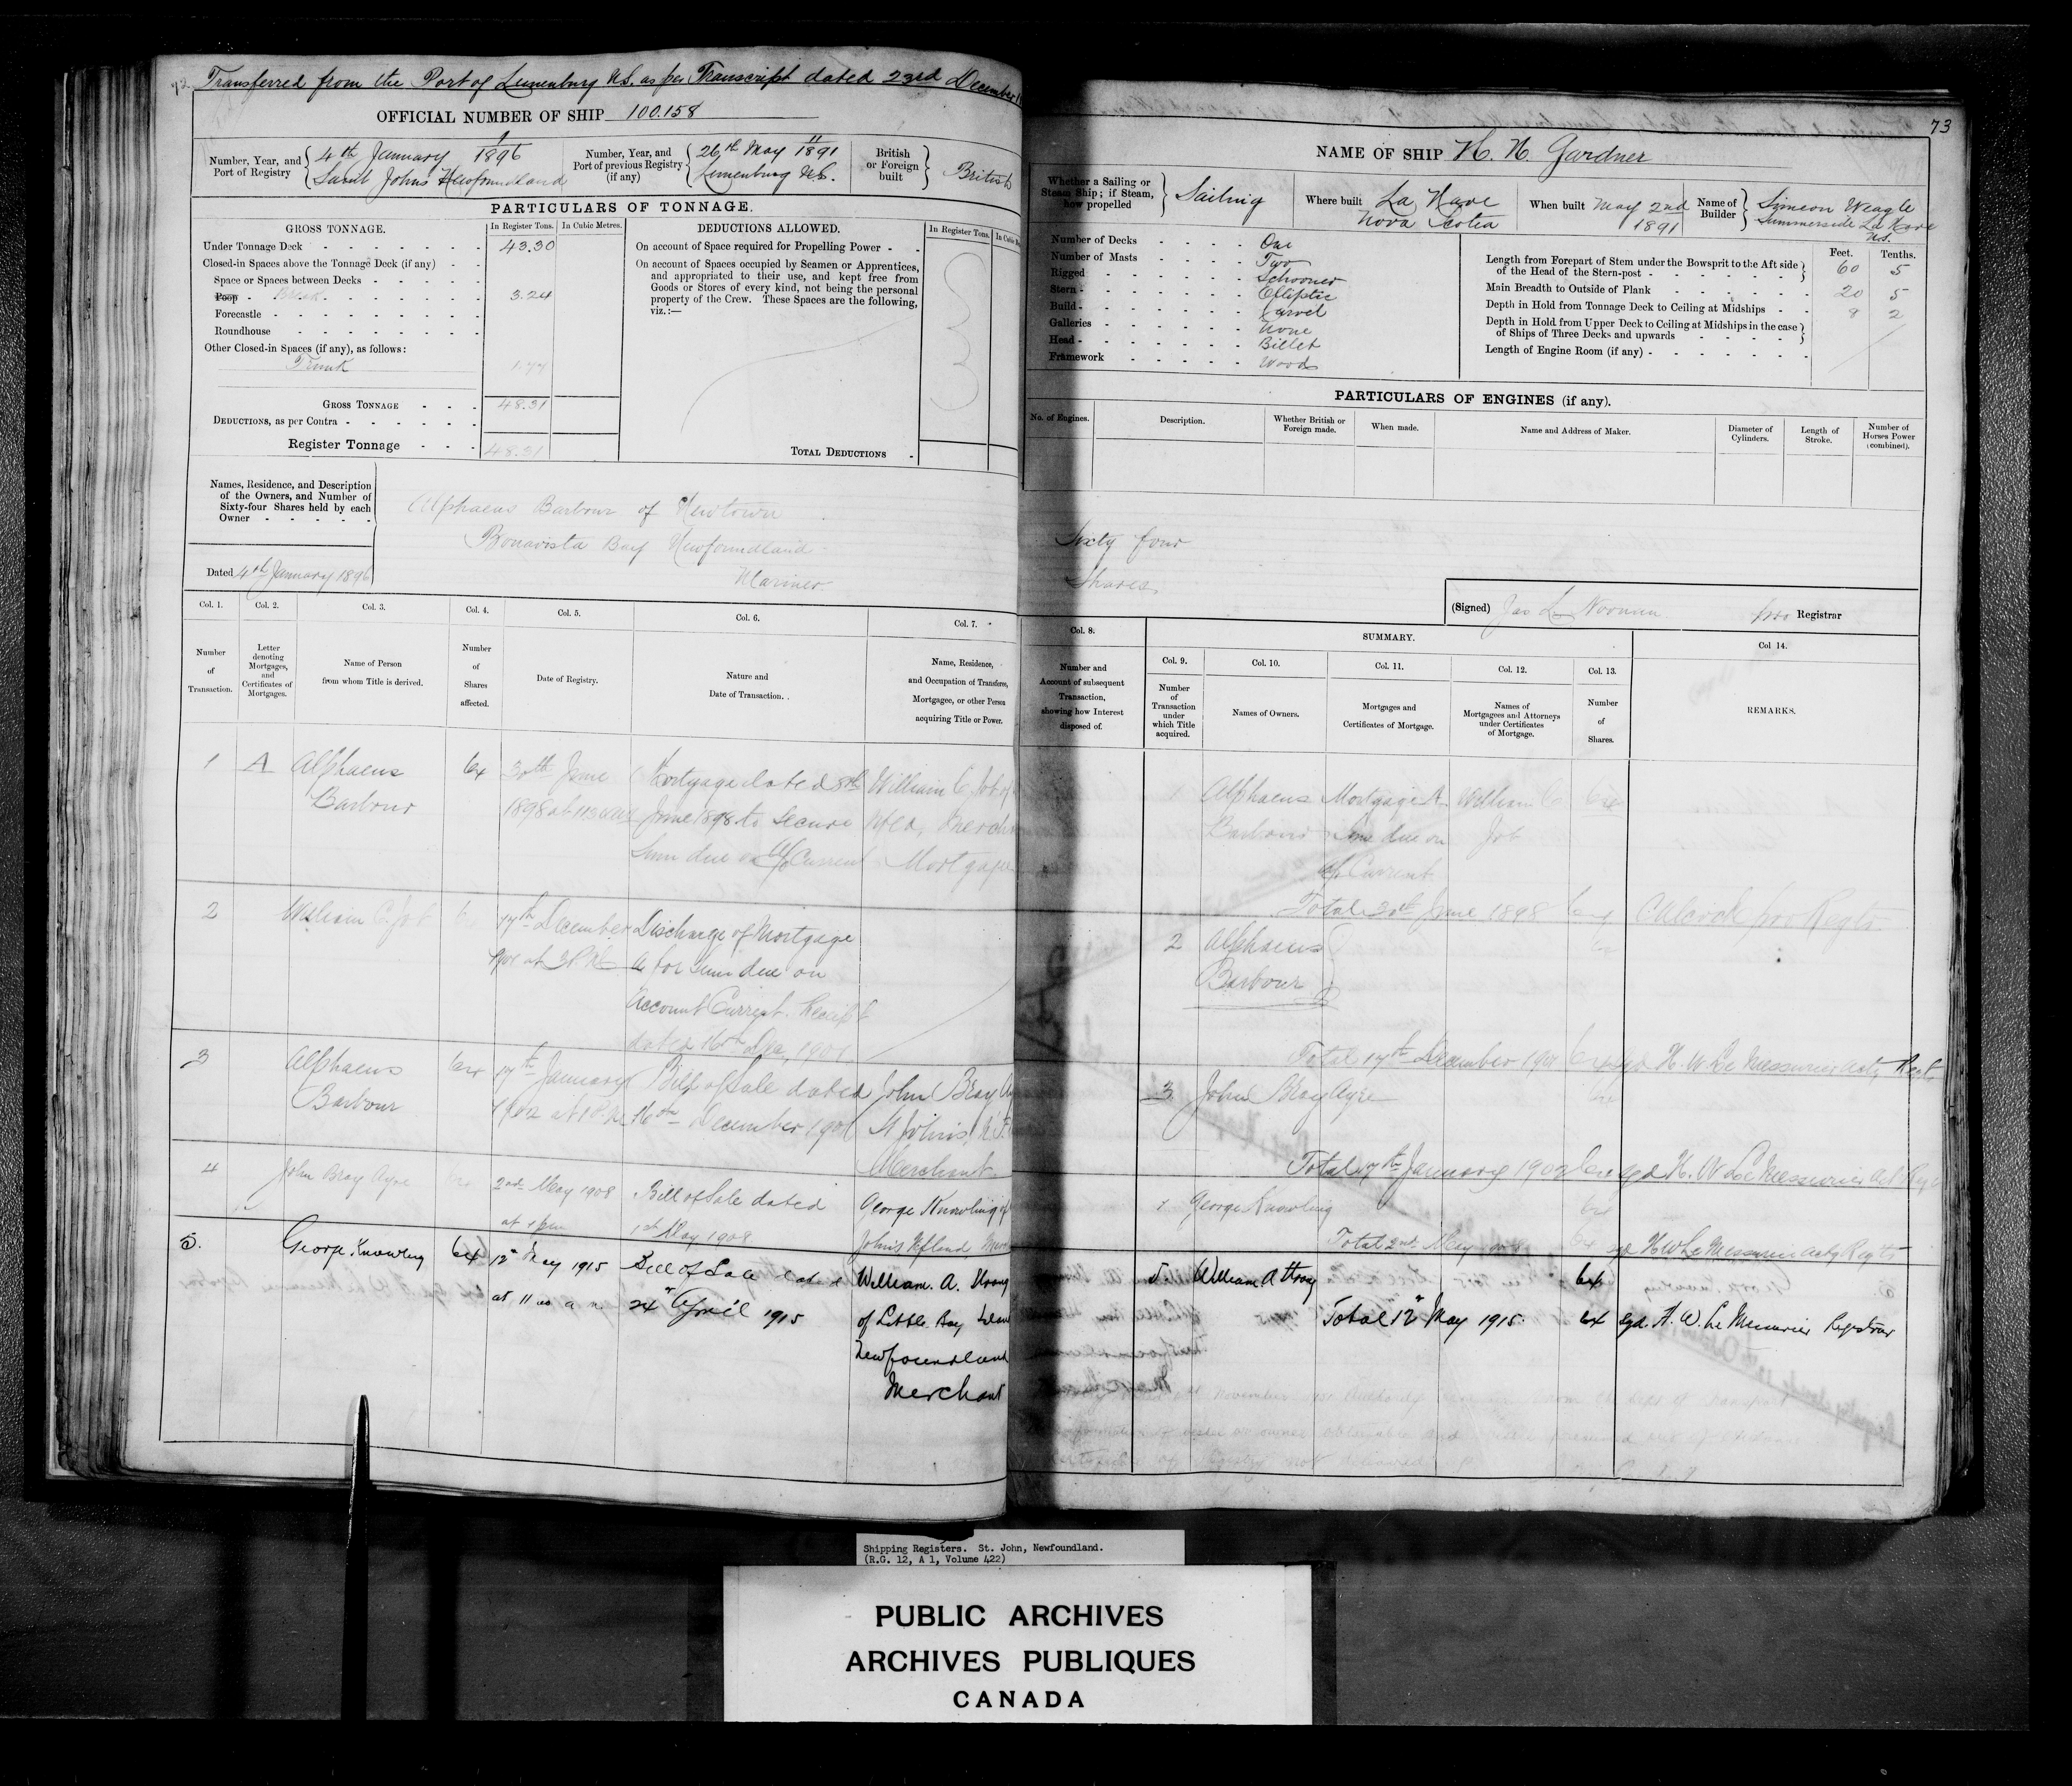 72
Transferred from the Port of Lunenburg N.S. as per Transcript dated 23rd December
OFFICIAL NUMBER OF SHIP 100.158
Number, Year, and Port of Registry
1
4th January 1896
Saint Johns Newfoundland
Number, Year, and Port of previous Registry (if any)
11
26th May 1891
Lunenburg N.S.
British or Foreign built
British
PARTICULARS OF TONNAGE.
GROSS TONNAGE.
In Register Tons.
In Cubic Metres.
Under Tonnage Deck 43.30
Closed-in Spaces above the Tonnage Deck (if any)
Space or Spaces between Decks
Poop Break 3.24
Forecastle
Roundhouse
Other Closed-in Spaces (if any), as follows:
Trunk 1.77
GROSS TONNAGE 48.31
DEDUCTIONS, as per Contra
Register Tonnage 48.31
DEDUCTIONS ALLOWED.
In Register Tons.
On account of Space required for Propelling Power
On account of Spaces occupied by Seamen or Apprentices,
and appropriated to their use, and kept free from
Goods or Stores of every kind, not being the personal
property of the Crew. These Spaces are the following,
viz.:—
TOTAL DEDUCTIONS
Names, Residence, and Description
of the Owners, and Number of
Sixty-four Shares held by each
Owner
Alphaeus Barbour of Newtown
Bonavista Bay Newfoundland
Mariner
Dated 4th January 1896
Col. 1. Number of Transaction.
Col. 2. Letter denoting Mortgages, and Certificates of Mortgages.
Col. 3. Name of Person from whom Title is derived.
Col. 4. Number of Shares affected.
Col. 5. Date of Registry.
Col. 6. Nature and Date of Transaction.
Col. 7. Name, Residence, and Occupation of Transferee, Mortgagee, or other Person acquiring Title or Power.
1 A Alphaeus 64 30th June Mortgage dated 8th William C Job of
Barbour 1898 at June 1898 to secure Nfld, Merch
Sum due on a/c Current Mortgagee
2 William C. Job 17th December Discharge of Mortgage
1901 at 3 P.M. A for Sum due on
Account Current. Receipt
dated 16th Dec, 1901
3 Alphaeus 64 17th January Bill of Sale dated John Bray Ay
Barbour 1902 at 16th December 1901 St John's, N.F.
Merchant
4 John Bray Ayre 2nd May 1908 Bill of Sale dated George Knowling of
at 1 pm 1st May 1908 John's Nfland
5. George Knowling 64 12th May 1915 Bill of Sale dated William. A. Strong
at 11 a m 24th April 1915 of Little Bay Islan
Newfoundland
Merchant
73
NAME OF SHIP H. N. Gardner
Whether a Sailing or Steam Ship; if Steam, how propelled
Sailing
Where built
La Have
Nova Scotia
When built
May 2nd
1891
Name of Builder
Simeon Weagle
Summerside La Have
N.S.
Number of Decks One
Number of Masts Two
Rigged Schooner
Stern Elliptic
Build Carvel
Galleries None
Head Billet
Framework Wood
Feet. Tenths.
Length from Forepart of Stem under the Bowsprit to the Aft side of the Head of the Stern-post 60 5
Main Breadth to Outside of Plank 20 5
Depth in Hold from Tonnage Deck to Ceiling at Midships 8 2
Depth in Hold from Upper Deck to Ceiling at Midships in the case of Ships of Three Decks and upwards
Length of Engine Room (if any)
PARTICULARS OF ENGINES (if any).
No. of Engines.
Description.
Whether British or Foreign made.
When made.
Name and Address of Maker.
Diameter of Cylinders.
Length of Stroke.
Number of Horses Power (combined).
Sixty four
Shares
(Signed) Jas L Noonan pro Registrar
SUMMARY.
Col. 8. Number and Account of subsequent Transaction, showing how Interest disposed of.
Col. 9. Number of Transaction under which Title acquired.
Col. 10. Names of Owners.
Col. 11. Mortgages and Certificates of Mortgage.
Col. 12. Names of Mortgagees and Attorneys under Certificates of Mortgage.
Col. 13. Number of Shares.
Col 14. REMARKS.
1 Alphaeus Mortgage A William C
Barbour Sum due on Job
a/c Current
Total 30th June 1898
2 Alphaeus
Barbour
Total 17th December 1901 H. W. Le Messurier
3 John Bray Ayre
Total 17th January 1902 sgd H. W. Le Messurier
George Knowling
Total 2nd May 1908 64 sgd H W Le Messurier Actg Regtr
5. William A Strong 64
Total 12th May 1915. 64 sgd. H. W. Le Messurier Registrar
Shipping Registers. St. John, Newfoundland.
(R.G. 12, A 1, Volume 422)
PUBLIC ARCHIVES
ARCHIVES PUBLIQUES
CANADA